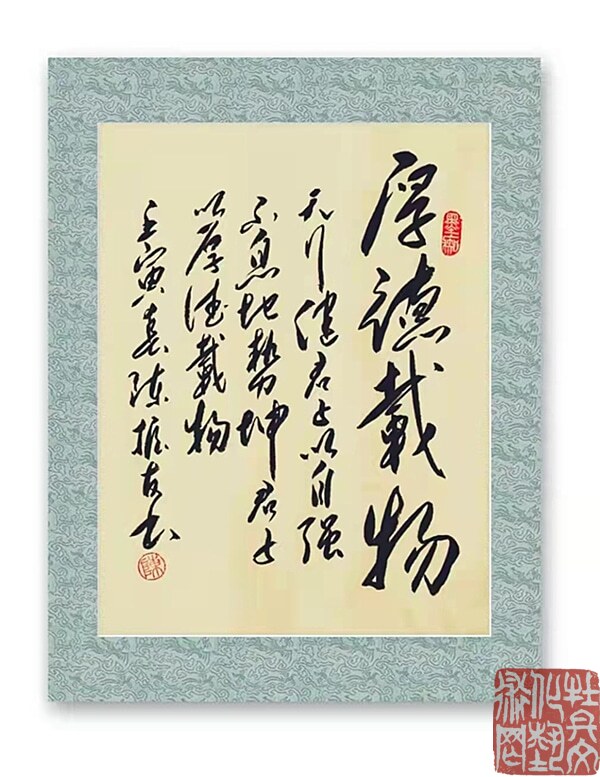 厚德載物
天行健君子以自强
不息地勢坤君子
以厚德載物
壬寅春陈振书